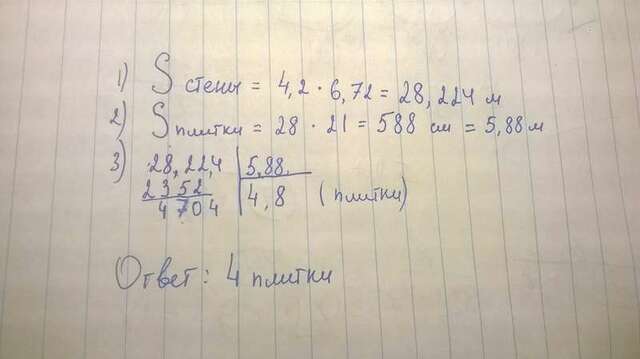 1) S стены = 4,2 · 6,72 = 28,224 м
2) S плитки = 28 · 21 = 588 см = 5,88 м
3) 28,22,4 | 5,88
2352 | 4,8 (плитки)
4704
Ответ: 4 плитки